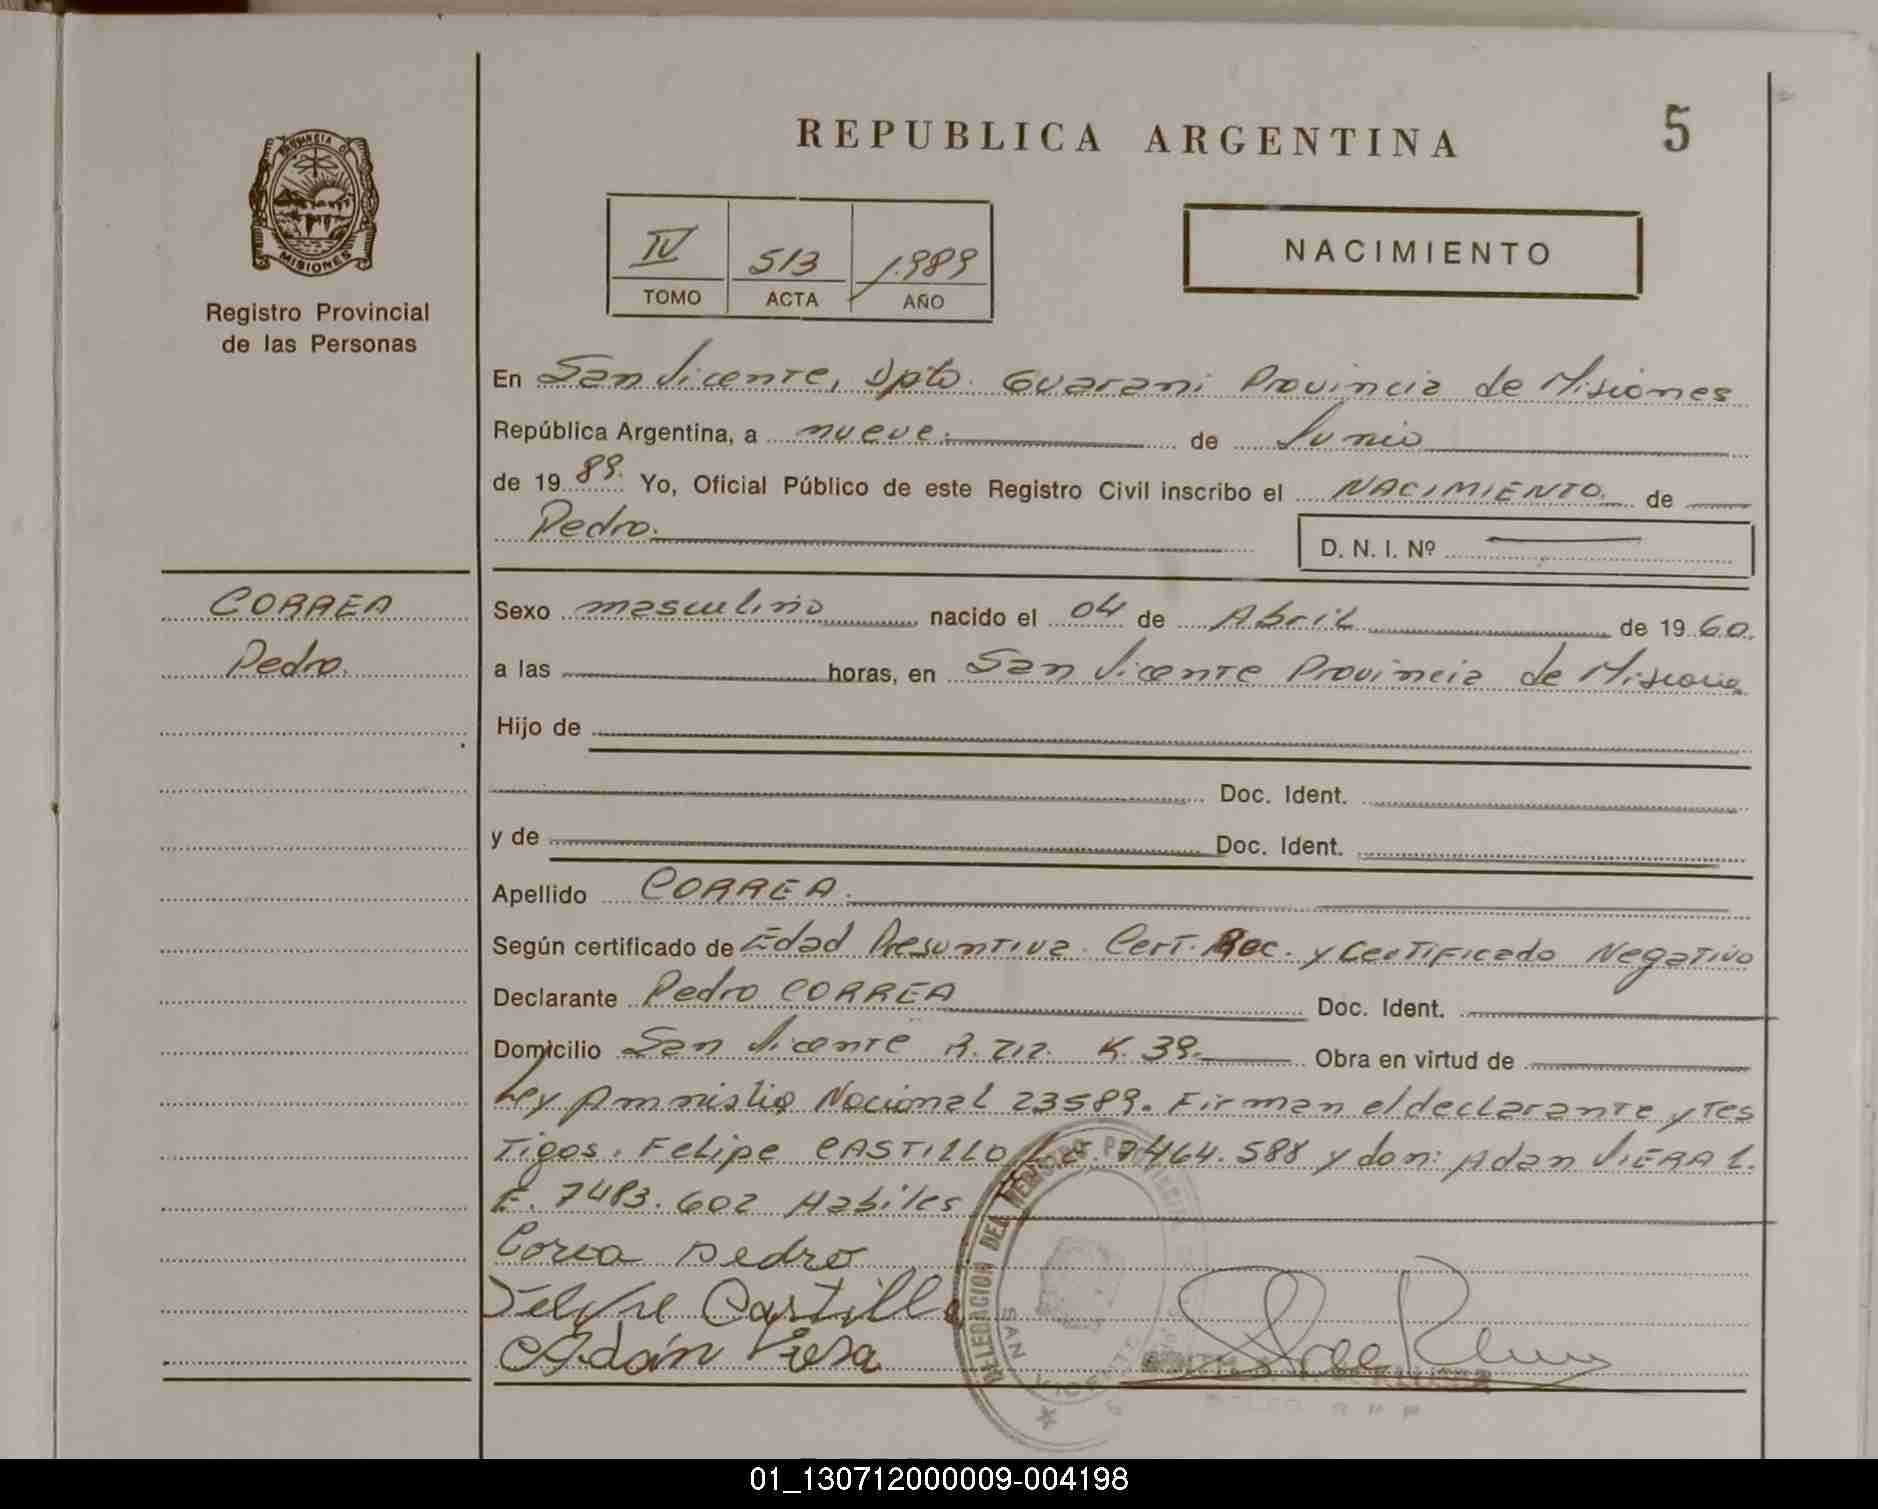 REPUBLICA ARGENTINA
5
PROVINCIA D
MISIONES
Registro Provincial
de las Personas
IV 513 1.989
TOMO ACTA AÑO
NACIMIENTO
En San Vicente, Dpto. Guarani Provincia de Misiones
República Argentina, a nueve. de Junio
de 19 89. Yo, Oficial Público de este Registro Civil inscribo el NACIMIENTO. de
Pedro.
D. N. I. Nº
CORREA
Pedro.
Sexo masculino nacido el 04 de Abril de 19 60.
a las horas, en San Vicente Provincia de Misiones
Hijo de
Doc. Ident.
y de Doc. Ident.
Apellido CORREA.
Según certificado de Edad Presuntiva. Cert. Rec. y Certificado Negativo
Declarante Pedro CORREA Doc. Ident.
Domicilio San Vicente R. 212. K. 39. Obra en virtud de
Ley Amnistia Nacional 23589. Firman el declarante y Tes
Tigos. Felipe CASTILLO L.E. 7464.588 y don: Adan VIERA L.
E. 7483.602 Habiles
Corea Pedro
Felipe Castillo
Adán Viera
DELEGACION DEL REGISTRO PROVINCIAL
SAN VICENTE
01_130712000009-004198